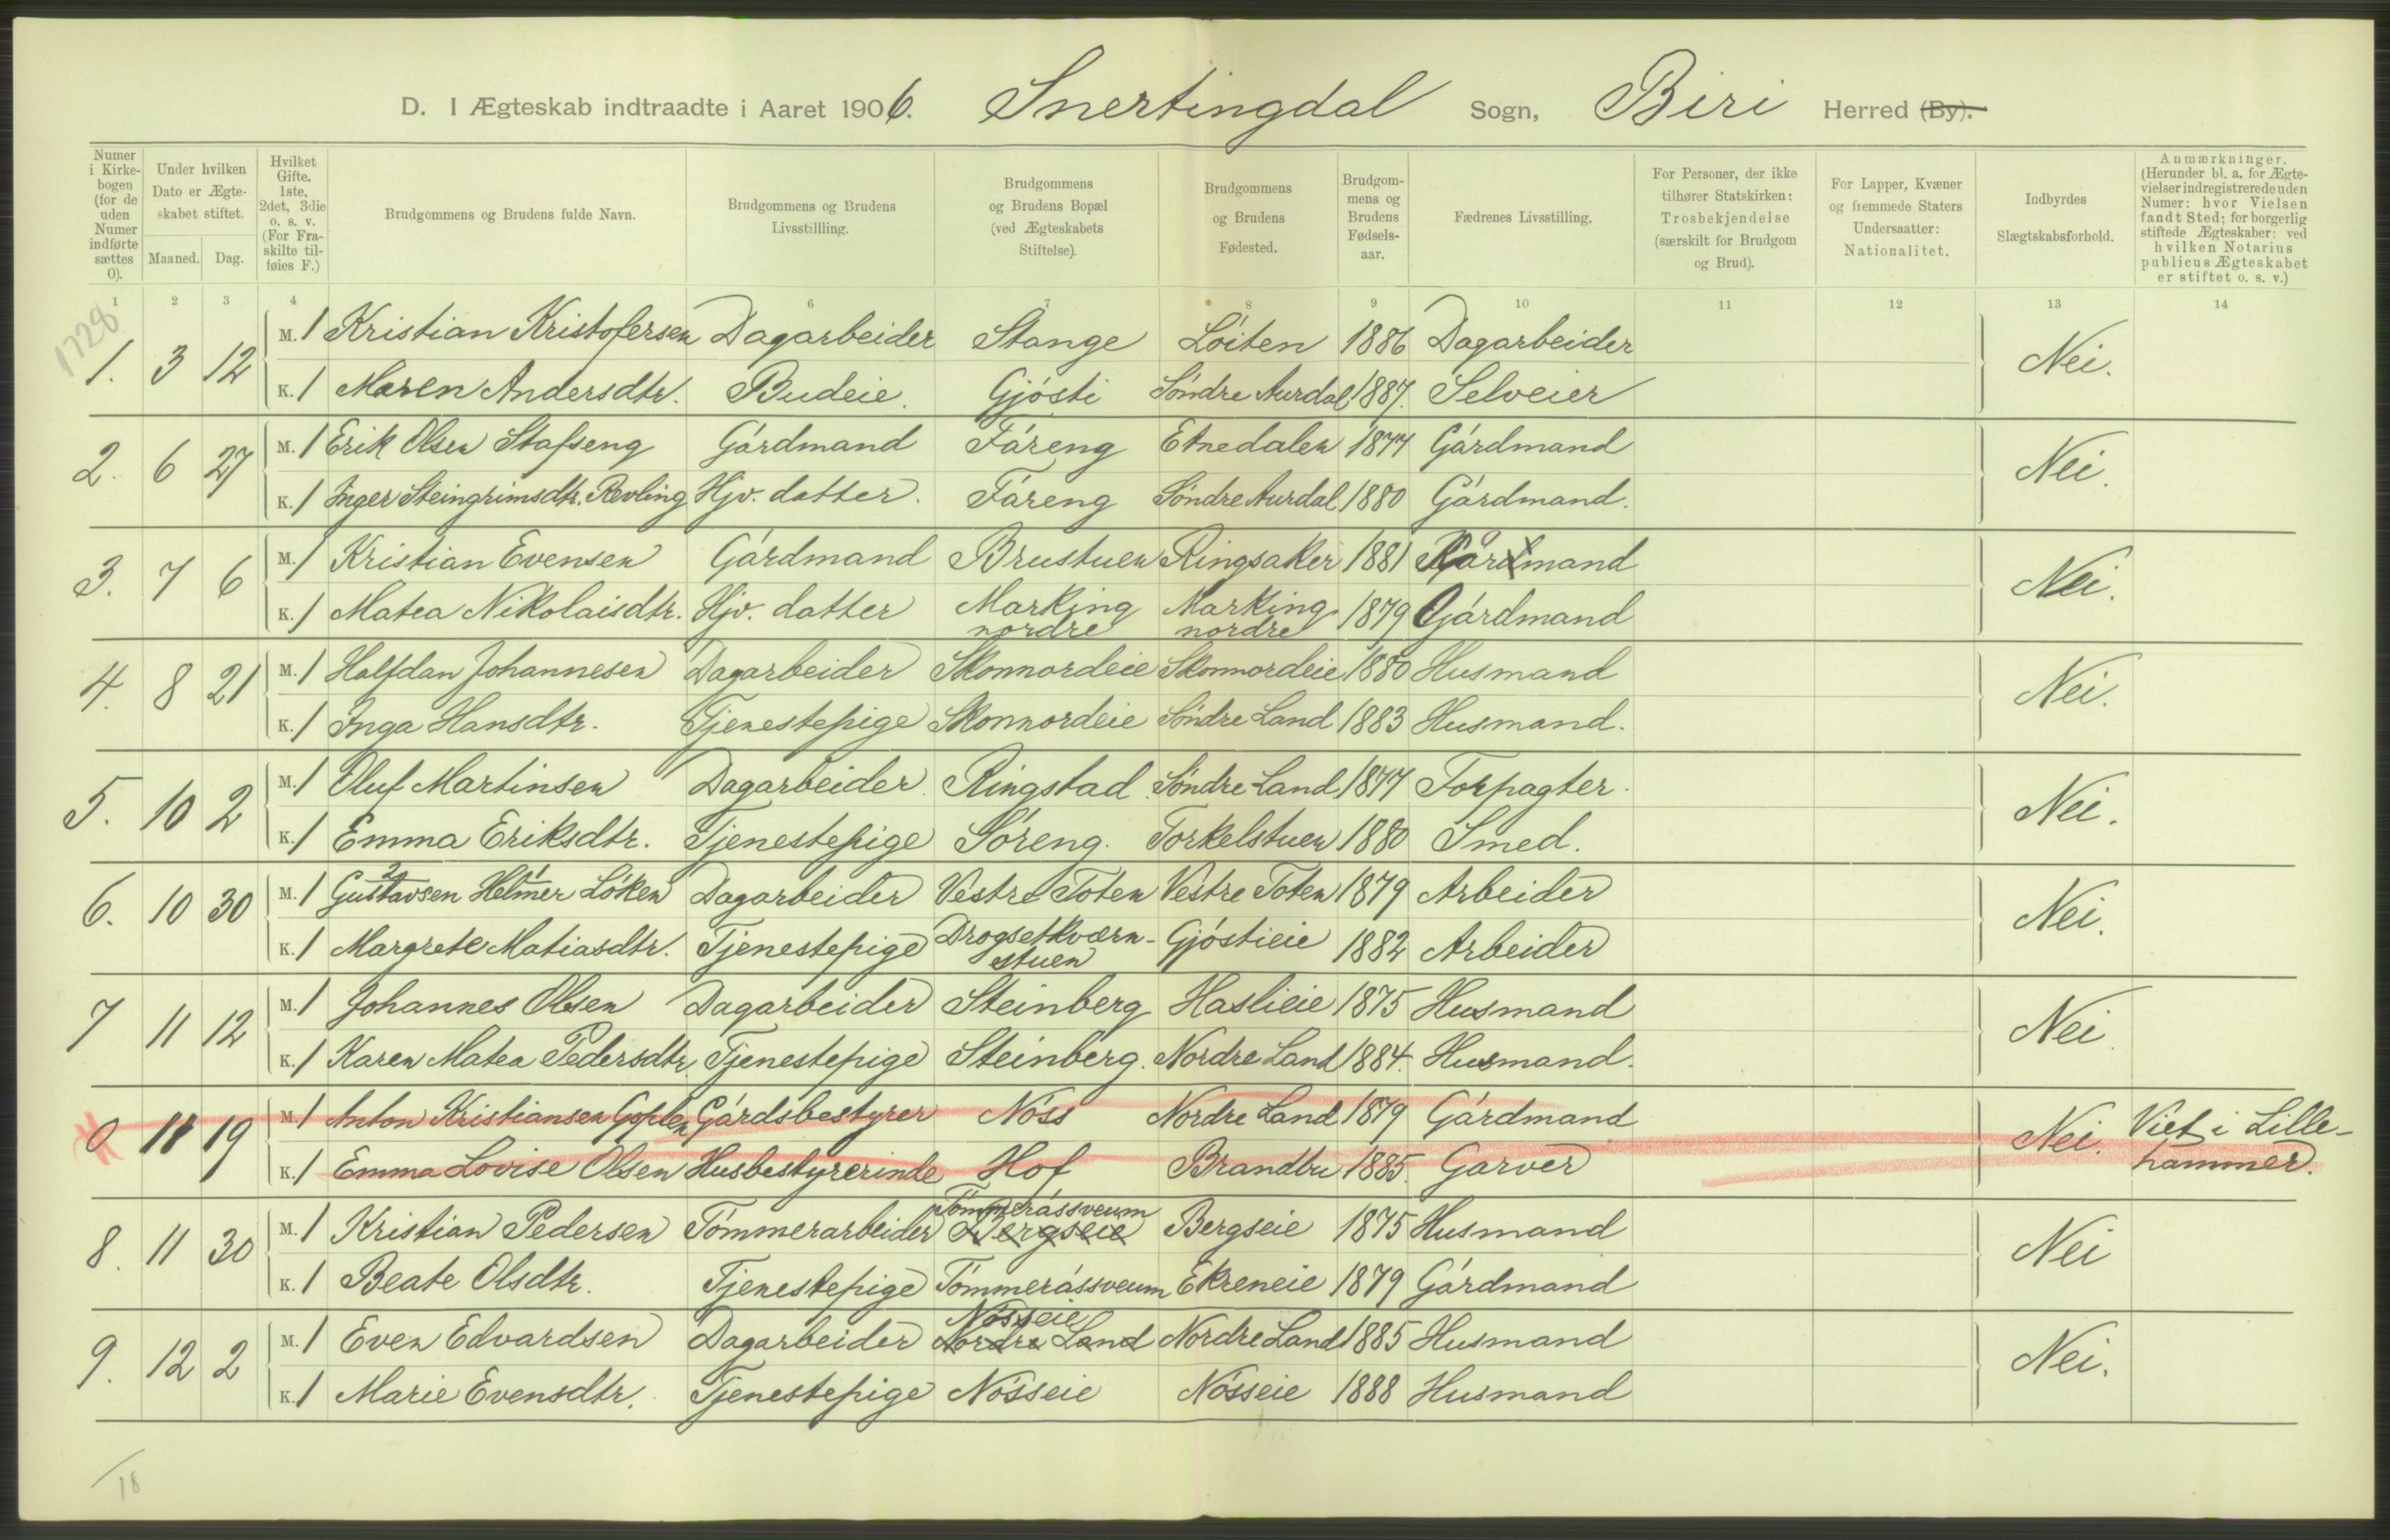 D. I Ægteskab indtraadte i Aaret 1906. Snertingdal Sogn, Biri Herred (By).
Numer i Kirkebogen (for de uden Numer indførte sættes 0).
Under hvilken Dato er Ægteskabet stiftet.
Maaned. Dag.
Hvilket Gifte. 1ste, 2det, 3die o. s. v. (For Fraskilte tilføies F.)
Brudgommens og Brudens fulde Navn.
Brudgommens og Brudens Livsstillling.
Brudgommens og Brudens Bopæl (ved Ægteskabets Stiftelse).
Brudgommens og Brudens Fødested.
Brudgommens og Brudens Fødselsaar.
Fædrenes Livsstilling.
For Personer, der ikke tilhører Statskirken: Trosbekjendelse (særskilt for Brudgom og Brud).
For Lapper, Kvæner og fremmede Staters Undersaatter: Nationalitet.
Indbyrdes Slægtskabsforhold.
Anmærkninger. (Herunder bl. a. for Ægtevielser indregistrerede uden Numer: hvor Vielsen fandt Sted; for borgerlig stiftede Ægteskaber: ved hvilken Notarius publicus Ægteskabet er stiftet o. s. v.)
1 2 3 4 6 7 8 9 10 11 12 13 14
1728
1. 3 12 M. 1 Kristian Kristofersen Dagarbeider Stange Löiten 1886 Dagarbeider Nei.
K. 1 Maren Andersdtr. Budeie. Gjösti Söndre Aurdal 1887. Selveier
2. 6 27 M. 1 Erik Olsen Stafseng Gårdmand Fåreng Etnedalen 1874 Gårdmand Nei.
K. 1 Inger Steingrimsdtr. Revling Hjv. datter. Fåreng Söndre Aurdal 1880 Gårdmand.
3. 7 6 M. 1 Kristian Evensen Gårdmand Brustuen Ringsaker 1881 Nei.
K. 1 Matea Nikolaisdtr. Hjv. datter Marking nordre Marking nordre 1879 Gårdmand
4. 8 21 M. 1 Halfdan Johannesen Dagarbeider Skonnordeie Skonnordeie 1880 Husmand Nei.
K. 1 Inga Hansdtr. Tjenestepige Skonnordeie Söndre Land 1883 Husmand.
5. 10 2 M. 1 Oluf Martinsen Dagarbeider. Ringstad. Söndre Land 1877 Forpagter. Nei.
K. 1 Emma Eriksdtr. Tjenestepige Söreng. Torkelstuen 1880 Smed.
6. 10 30 M. 1 2 Gustavsen 1 Helmer Löken Dagarbeider Vestre Toten Vestre Toten 1879 Arbeider Nei.
K. 1 Margrete Matiasdtr. Tjenestepige Drogsetkværnstuen Gjöstieie 1882 Arbeider
7 11 12 M. 1 Johannes Olsen Dagarbeider Steinberg Haslieie 1875 Husmand Nei.
K. 1 Karen Matea Pedersdtr. Tjenestepige Steinberg. Nordre Land 1884. Husmand.
0 11 19 M. 1 Anton Kristiansen Goplen Gårdsbestyrer Nöss Nordre Land 1879 Gårdmand Nei. Viet i Lillehammer.
K. 1 Emma Lovise Olsen Husbestyrerinde Hof Brandbu 1885. Garver
8. 11 30 M. 1 Kristian Pedersen Tömmerarbeider Tömmeråssveum Bergseie Bergseie 1875 Husmand Nei
K. 1 Beate Olsdtr. Tjenestepige Tömmeråssveum Ekreneie 1879 Gårdmand
9. 12 2 M. 1 Even Edvardsen Dagarbeider Nösseie Nordre Land Nordre Land 1885 Husmand Nei.
K. 1 Marie Evensdtr. Tjenestepige Nösseie Nösseie 1888 Husmand
18